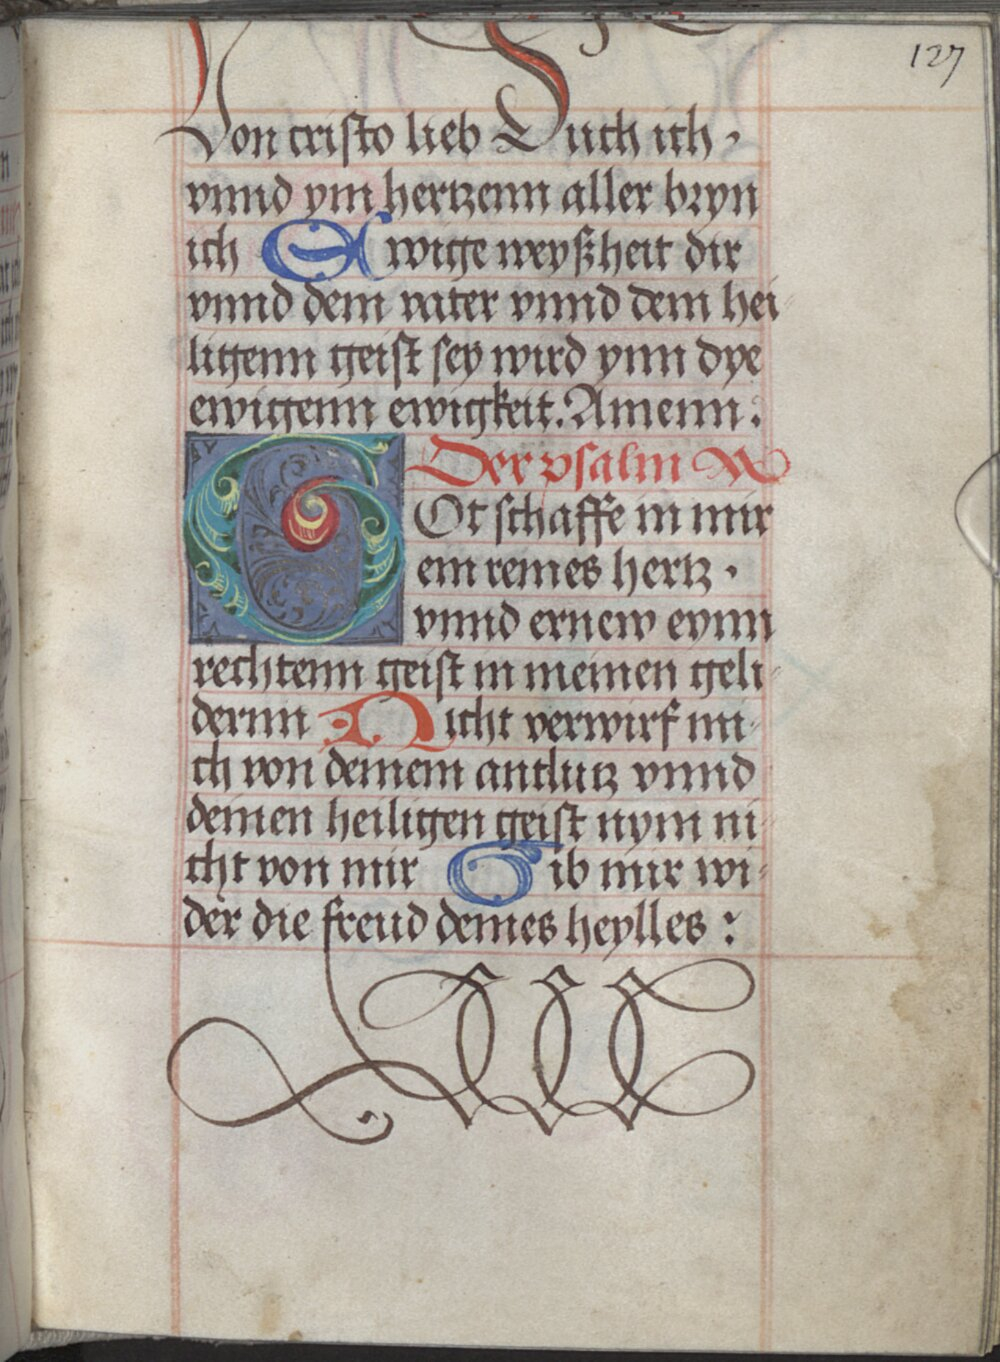 127
Von cristo lieb Such ich ·
vnnd ym hertzenn aller bryn
ich Ewige weyßheit dir
vnnd dem vater vnnd dem hei
ligenn geist sey wird ynn dye
ewigenn ewigkeit. Amenn :
Der psalm
Ot schaffe in mir
ein reines hertz ·
vnnd ernew eynn
rechtenn geist in meinen geli
dernn Nicht verwirf mi
ch von deinem antlutz vnnd
deinen heiligen geist nym ni
cht von mir Gib mir wi
der die freud deines heylles :